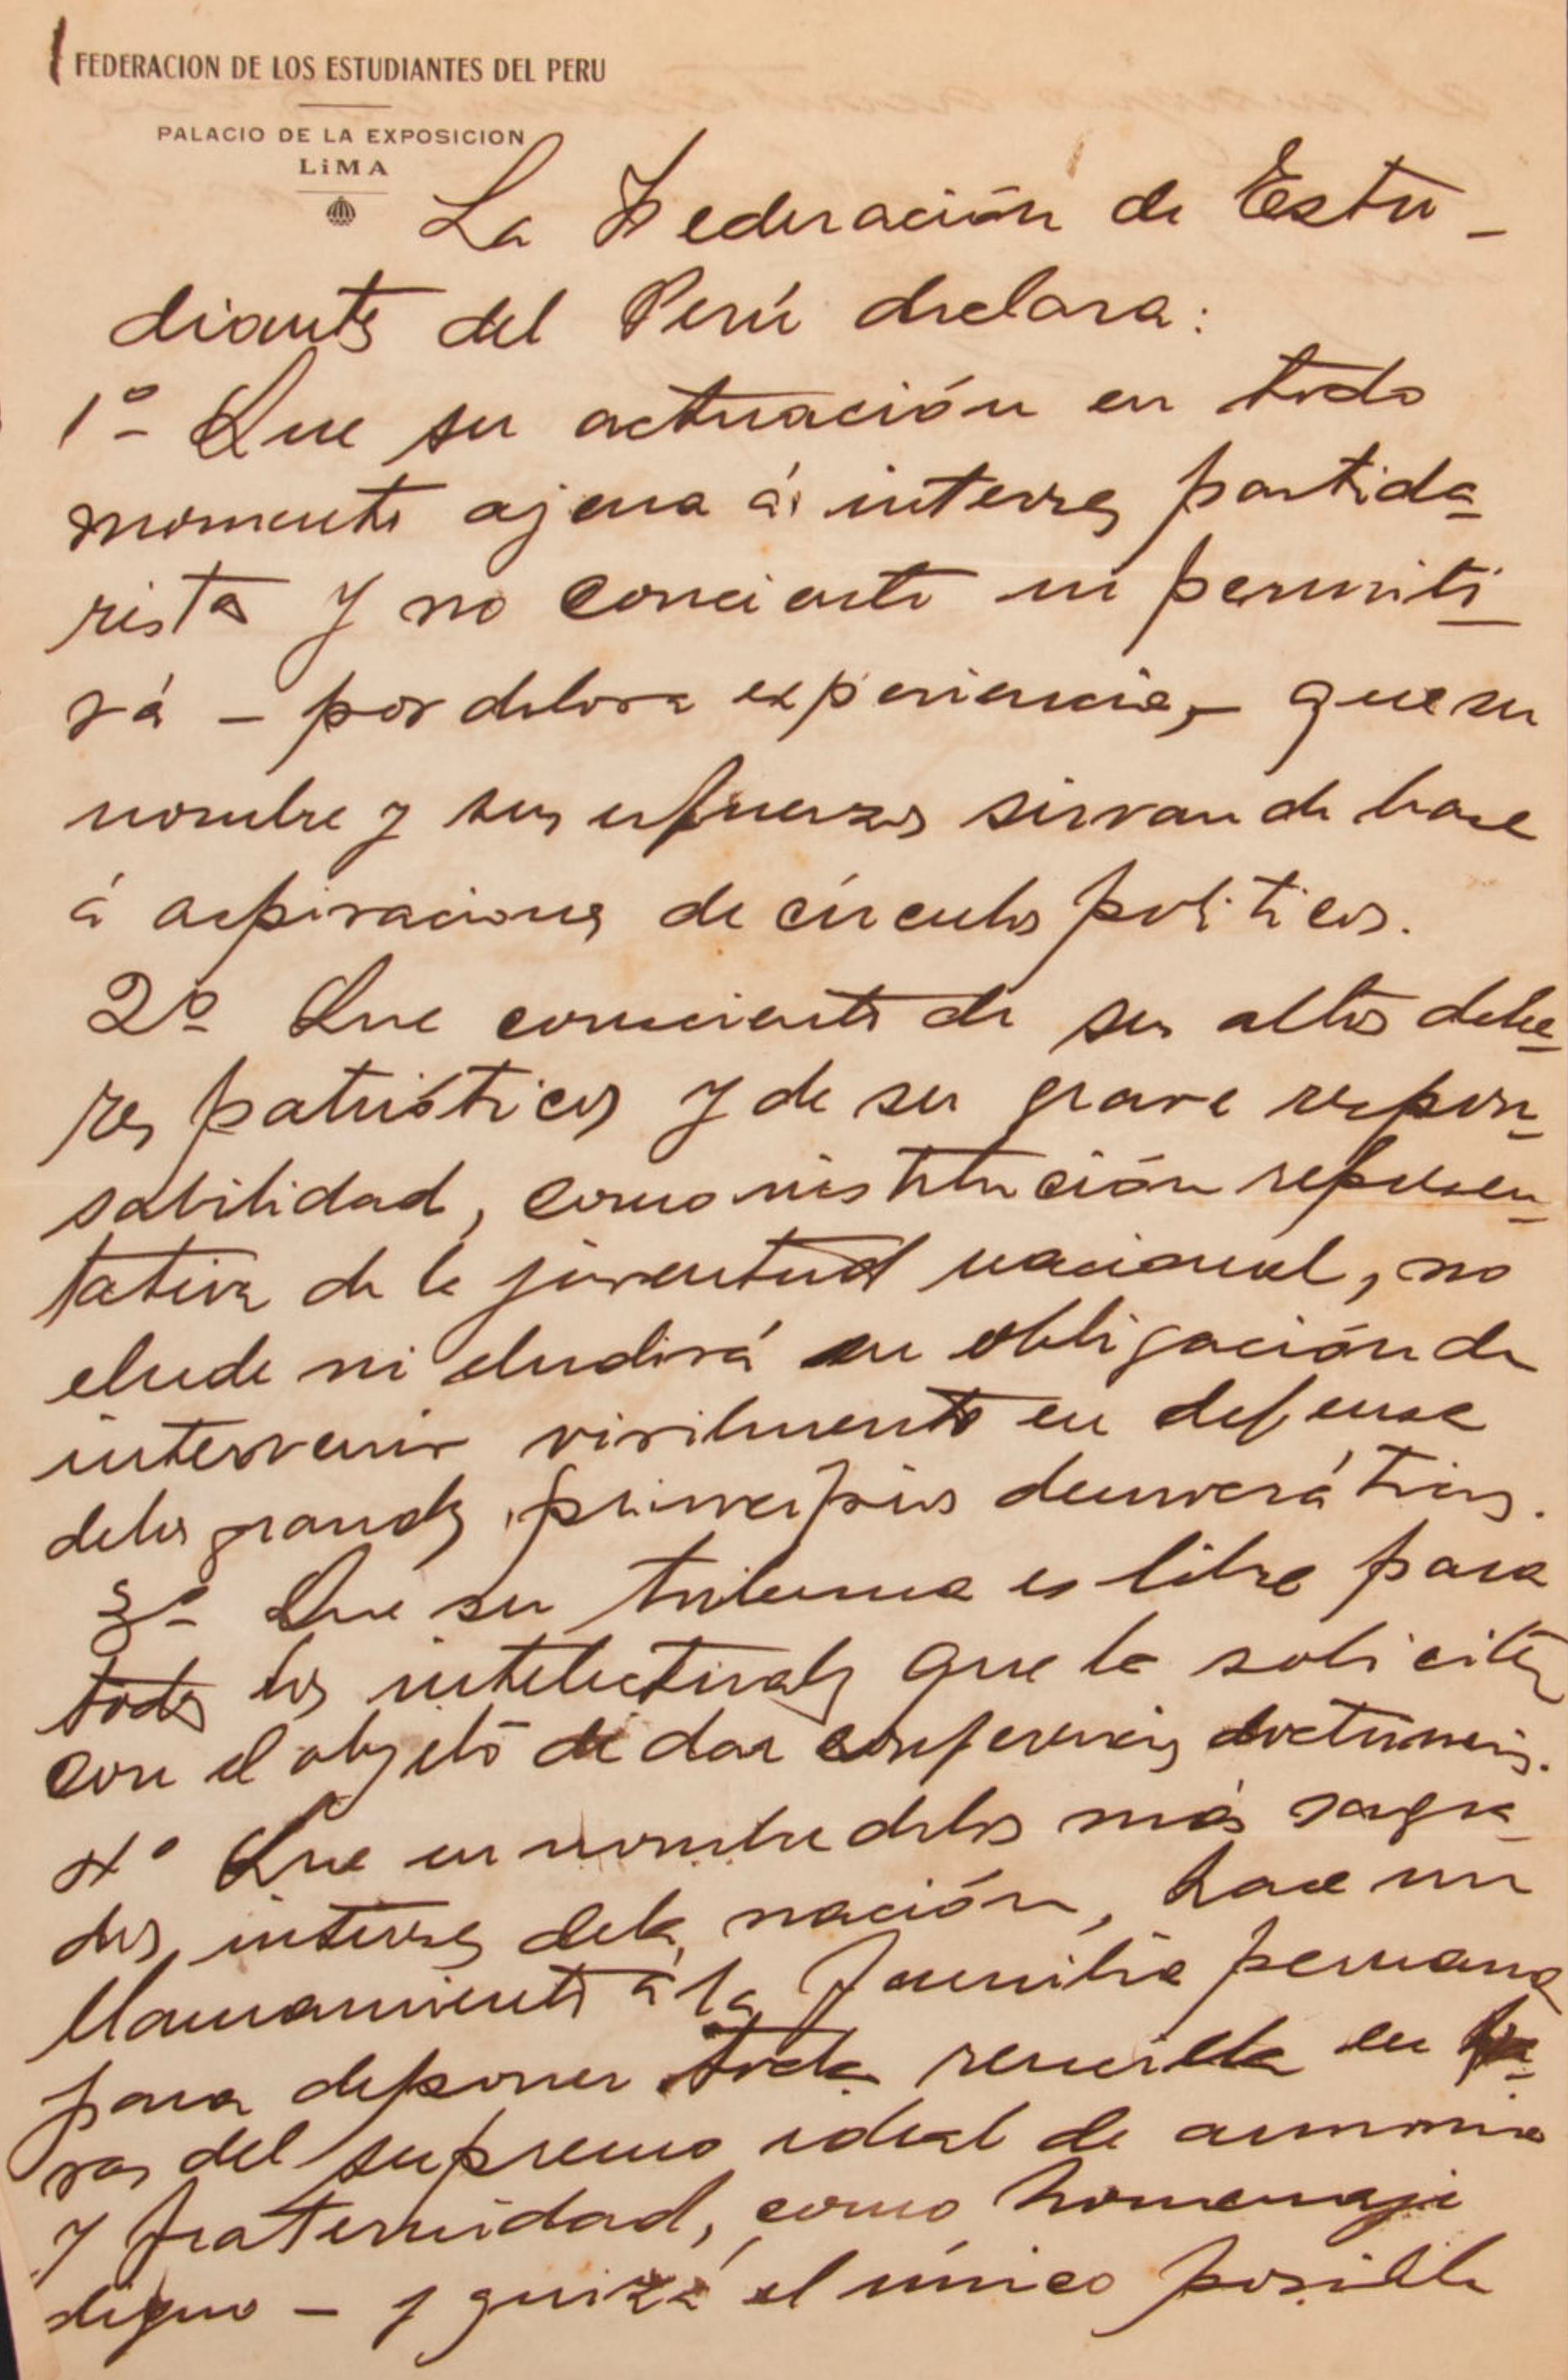 FEDERACION DE LOS ESTUDIANTES DEL PERU
PALACIO DE LA EXPOSICION
LiMA
La Federación de Estu-
diantes del Perú declara:
1º- Que su actuación en todo
momento ajena á interes partida-
rista y no conciente ni permiti-
rá - por dolora experiencia, - que su
nombre y sus esfuerzos sirvan de base
á aspiraciones de círculos políticos.
2º Que consciente de sus altos debe-
res patrióticos y de su grave respon-
sabilidad, como institución represen-
tativa de la juventud nacional, no
elude ni eludirá su obligación de
intervenir virilmente en defensa
de los grandes principios democráticos.
3º- Que su tribuna es libre para
todos los intelectuales que la soliciten
con el objeto de dar conferencias doctrinarias.
4º Que en nombre de los más sagra-
dos intereses de la nación, hace un
llamamiento á la familia peruana
para deponer toda rencilla en
ras del supremo ideal de armonia
y fraternidad, como homenaje
digno - y quizá el único posible